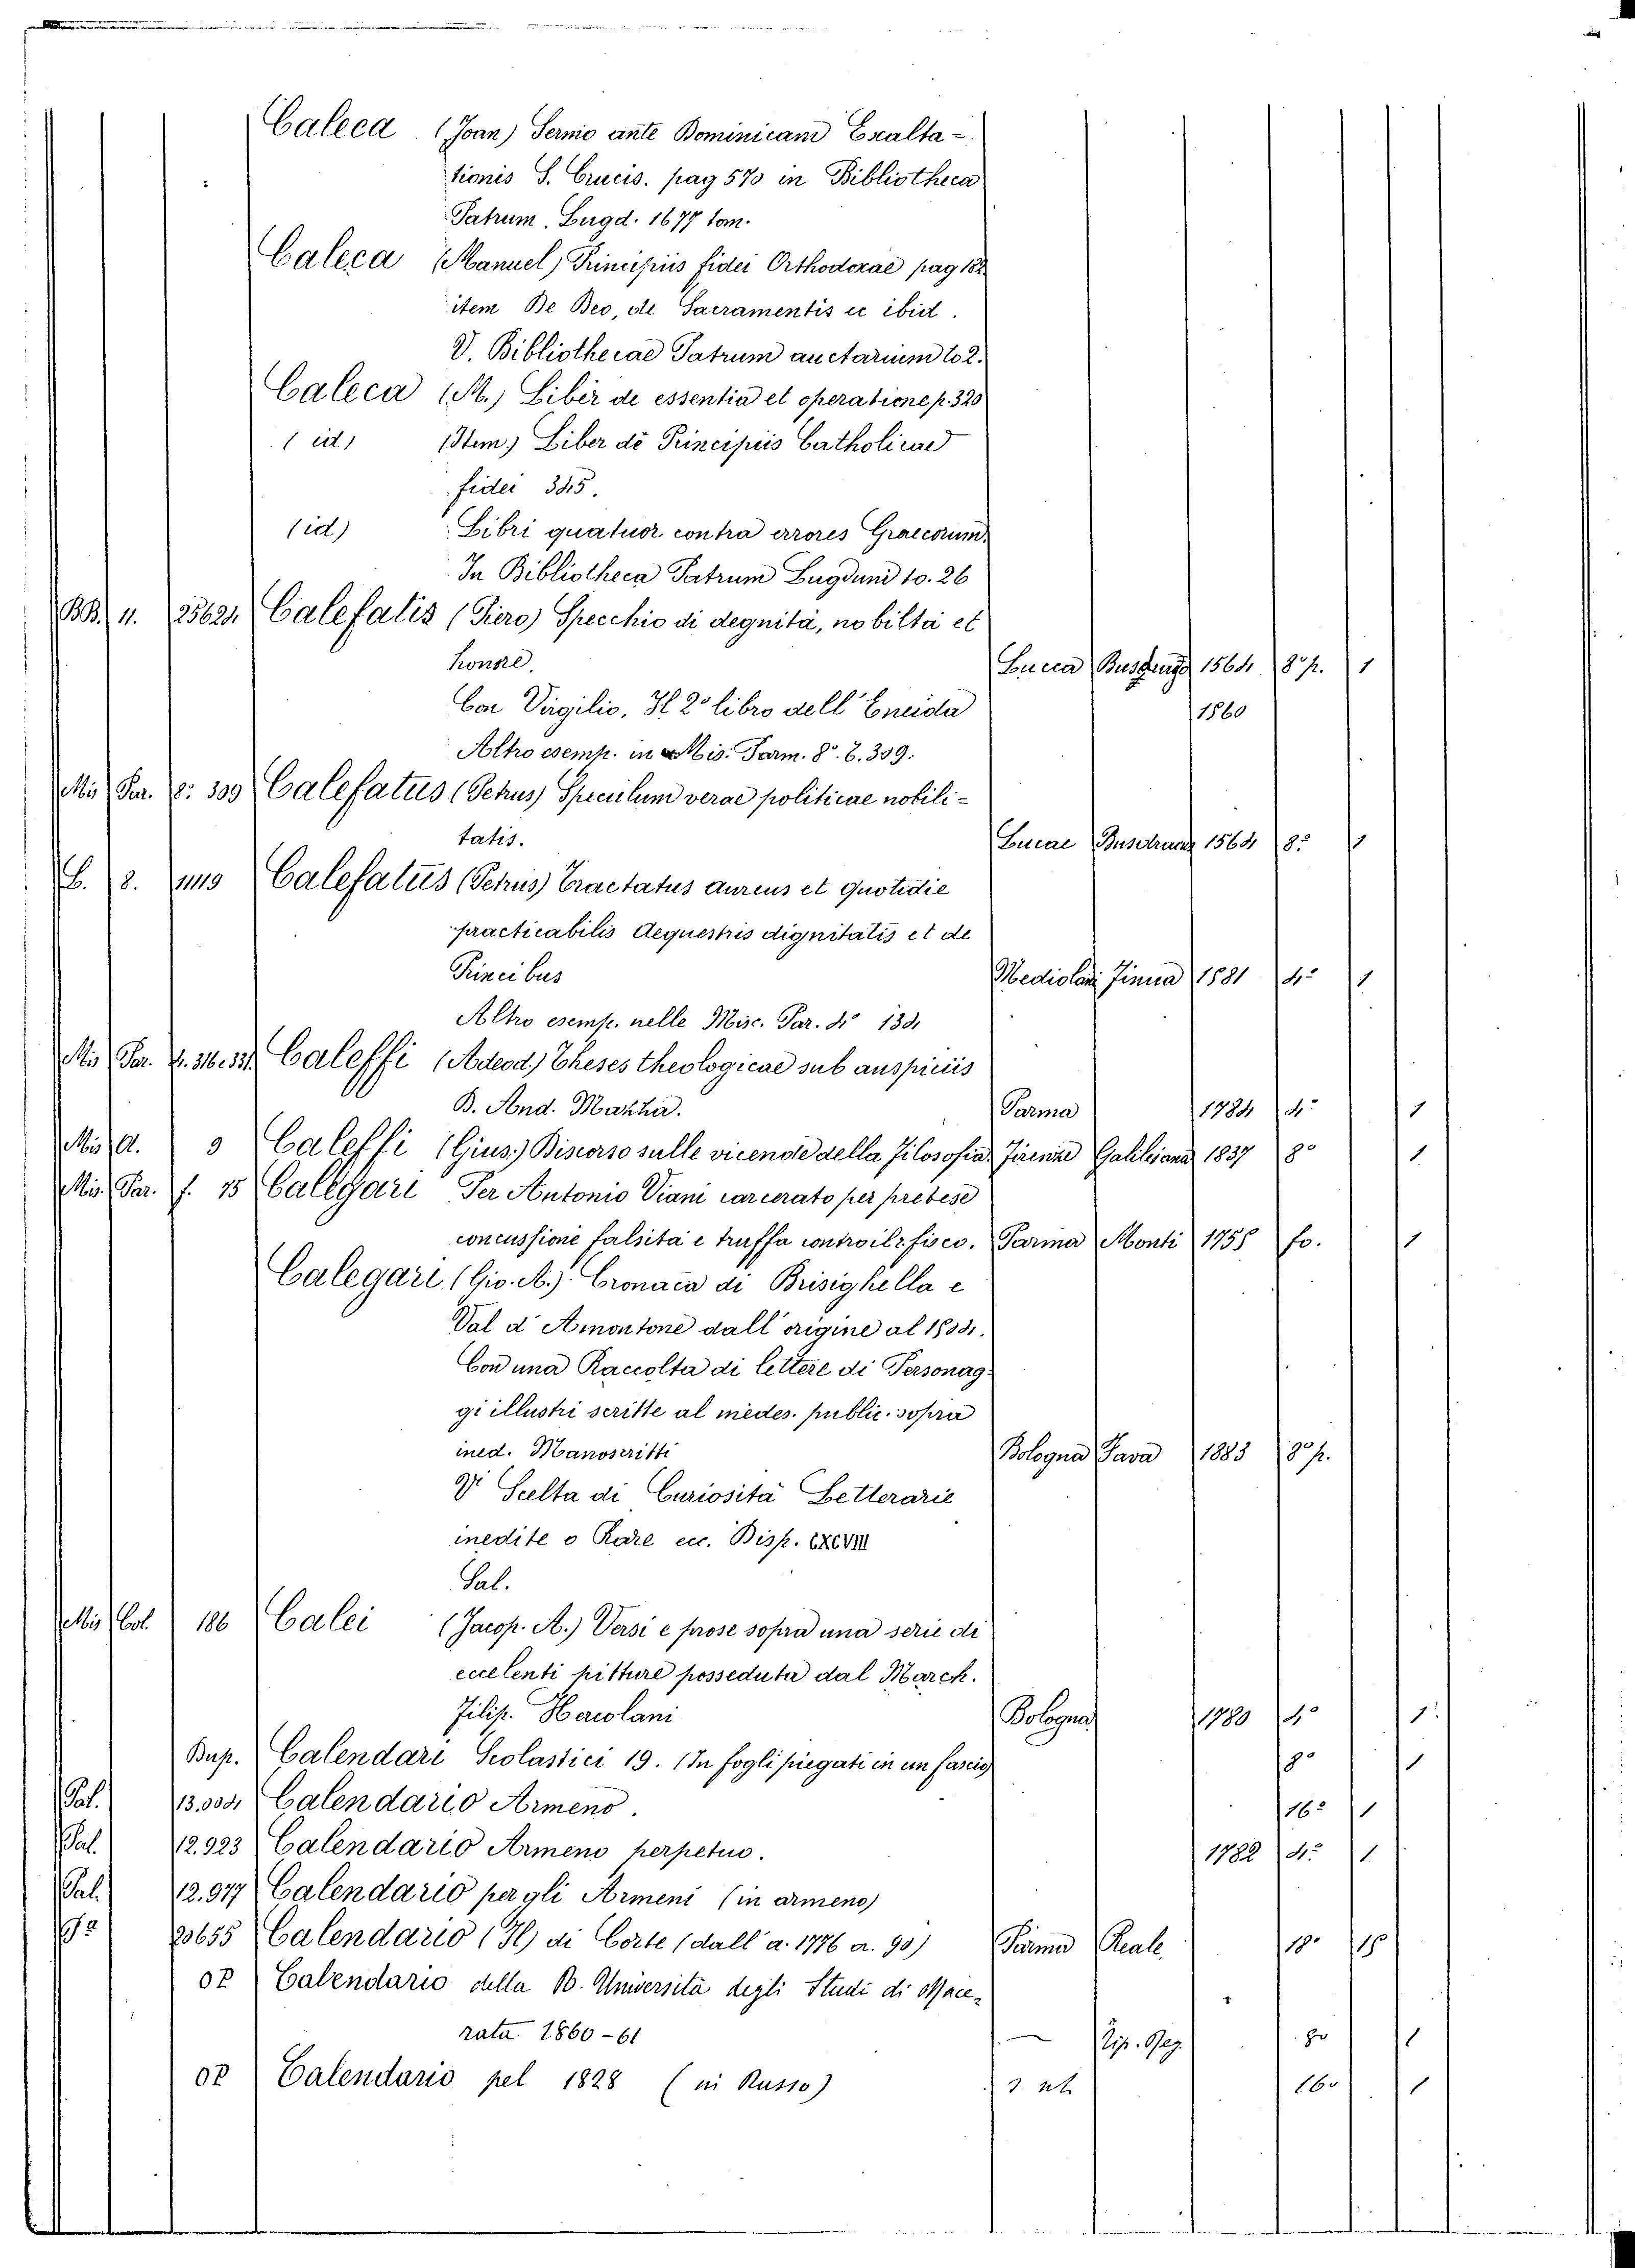 Caleca (Joan) Sermo ante Dominicam Exalta-
tionis S. Crucis. pag 570 in Bibliotheca
Patrum. Lugd. 1677 tom.
Caleca (Manuel) Principiis fidei Orthodoxae pag 182
item De Deo, de Sacramentis ec ibid.
V. Bibliothecae Patrum auctarium to 2.
Caleca (M.) Liber de essentia et operatione p. 320
(id) (Item) Liber de Principiis Catholicae
fidei 345.
(id) Libri quatuor contra errores Graecorum.
In Bibliotheca Patrum Lugduni to. 26
BB. 11. 25624 Calefatis (Piero) Specchio di degnità, nobiltà et
honore. Lucca Busdrago 1564 8º p. 1
Con Virgilio, Il 2º libro dell'Eneida 1560
Altro esemp. in Mis. Parm. 8º. 6. 309.
Mis Par. 8: 309 Calefatus (Petrus) Speculum verae politicae nobili-
tatis. Lucae Busdracus 1564 8º 1
C. 8. 11119 Calefatus (Petrus) Tractatus aureus et quotidie
practicabilis aequestris dignitatis et de
Princibus Mediolani Tinus 1581 4º 1
Altro esemp. nelle Misc. Par. 4º 134
Mis Par. 4. Caleffi (Adeod.) Theses theologicae sub auspiciis
B. And. Mazza. Parma 1784 4º 1
Mis A. 9 Caleffi (Gius.) Discorso sulle vicende della Filosofia Firenze Galileiana 1837 8º 1
Mis. Par. f. 15 Calegari Per Antonio Viani carcerato per pretese
concussione falsità e truffa contro il r. fisco. Parma Monti 1758 fo. 1
Calegari (Gio. A.) Cronaca di Brisighella e
Val d'Amontone dall'origine al 1504.
Con una Raccolta di lettere di Personag-
gi illustri scritte al medes. public. sopra
ined. Manoscritti Bologna Fava 1883 8º p.
Vi Scelta di Curiosità Letterarie
inedite o Rare ec. Disp. CXCVIII
Sal.
Mis Col. 186 Calei (Jacop. A.) Versi e prose sopra una serie di
eccelenti pitture posseduta dal March.
Filip. Hercolani Bologna 1780 4º 1
Bup. Calendari Scolastici 19. (In fogli piegati in un fascio 8º 1
Pal. 13.004 Calendario Armeno. 16º 1
Pal. 12.923 Calendario Armeno perpetuo. 1782 4º 1
Pal. 12.977 Calendario per gli Armeni (in armeno)
20655 Calendario (Il) di Corte (dall'a. 1776 a. 90) Parma Reale 18º 15
Calendario della R. Università degli Studi di Mace-
rata 1860-61 — Tip. Reg. 8º 1
Calendario pel 1828 (in Russo) 16º 1